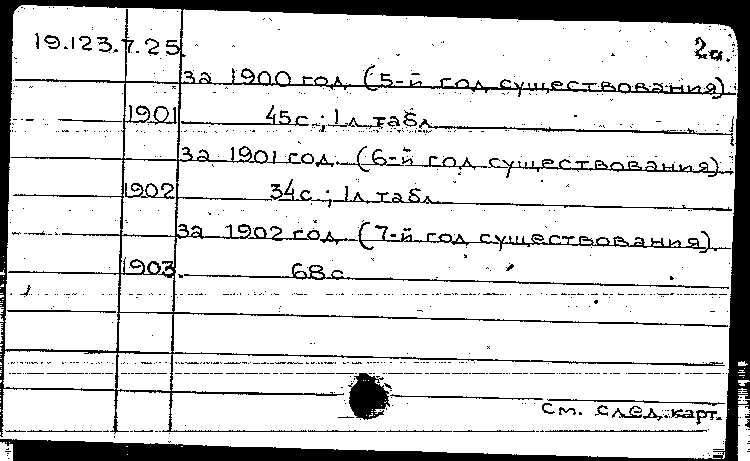 19.123.7.25. 2а.
за 1900 год. (5-й год существования)
1901 45с.; 1л табл.
за 1901 год. (6-й год существования)
1902 34с.; 1л табл.
за 1902 год. (7-й год существования).
1903. 68с.
См. след. карт.